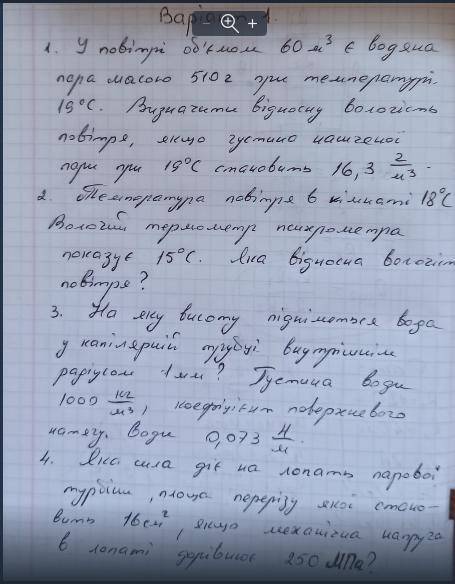 Варіант 1.
1. У повітрі об'ємом 60 м³ є водяна
пара масою 510 г при температурі
19°C. Визначити відносну вологість
повітря, якщо густина насиченої
пари при 19°C становить 16,3 г/м³.
2. Температура повітря в кімнаті 18°C
Вологий термометр психрометра
показує 15°C. Яка відносна вологіст
повітря?
3. На яку висоту підніметься вода
у капілярній трубці внутрішнім
радіусом 1 мм? Густина води
1000 кг/м³, коефіцієнт поверхневого
натягу. Води 0,073 Н/м.
4. Яка сила діє на лопать парової
турбіни, площа перерізу якої стано-
вить 16 см², якщо механічна напруга
в лопаті дорівнює 250 МПа?